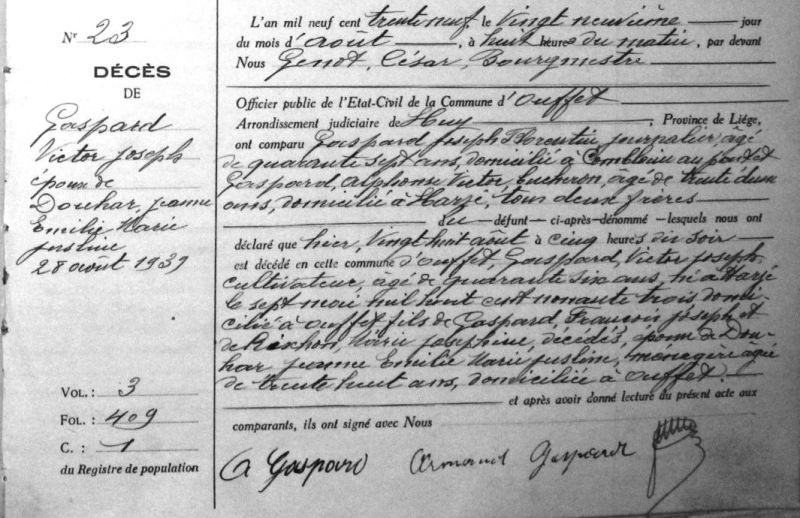 Nr 23
DÉCÈS
DE
Gaspard
Victor Joseph
époux de
Douhar, Jeanne
Emilie Marie
Jusline
28 août 1939
VOL. : 3
FOL. : 409
C. : 1
du Registre de population
L'an mil neuf cent trente neuf, le Vingt neuvième jour
du mois d'août, à huit heures du matin, par devant
Nous Genot, César, Bourgmestre
Officier public de l'Etat-Civil de la Commune d'Ouffet
Arrondissement judiciaire de Huy, Province de Liége,
ont comparu Gaspard Joseph Florentin, journalier, âgé
de quarante sept ans, domicilié à Comblain au pont et
Gaspard, Alphonse Victor, bucheron, âgé de trente deux
ans, domicilié à Harzé, tous deux frères
du défunt ci-après-dénommé lesquels nous ont
déclaré que hier, Vingt huit août à cinq heures du soir
est décédé en cette commune d'Ouffet, Gaspard, Victor Joseph
cultivateur, âgé de quarante six ans, né à Harzé
le sept mai mil huit cent nonante trois domi-
cilié à Ouffet fils de Gaspard, François Joseph et
de Marie Josephine, décédés, époux de Dou-
har Jeanne Emilie Marie Jusline, ménagère âgée
de trente huit ans, domiciliée à Ouffet.
et après avoir donné lecture du présent acte aux
comparants, ils ont signé avec Nous
A Gaspard Armand Gaspard